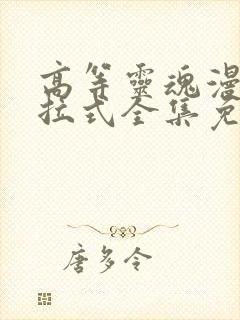 高等靈魂漫
拉式全集免
唐多令